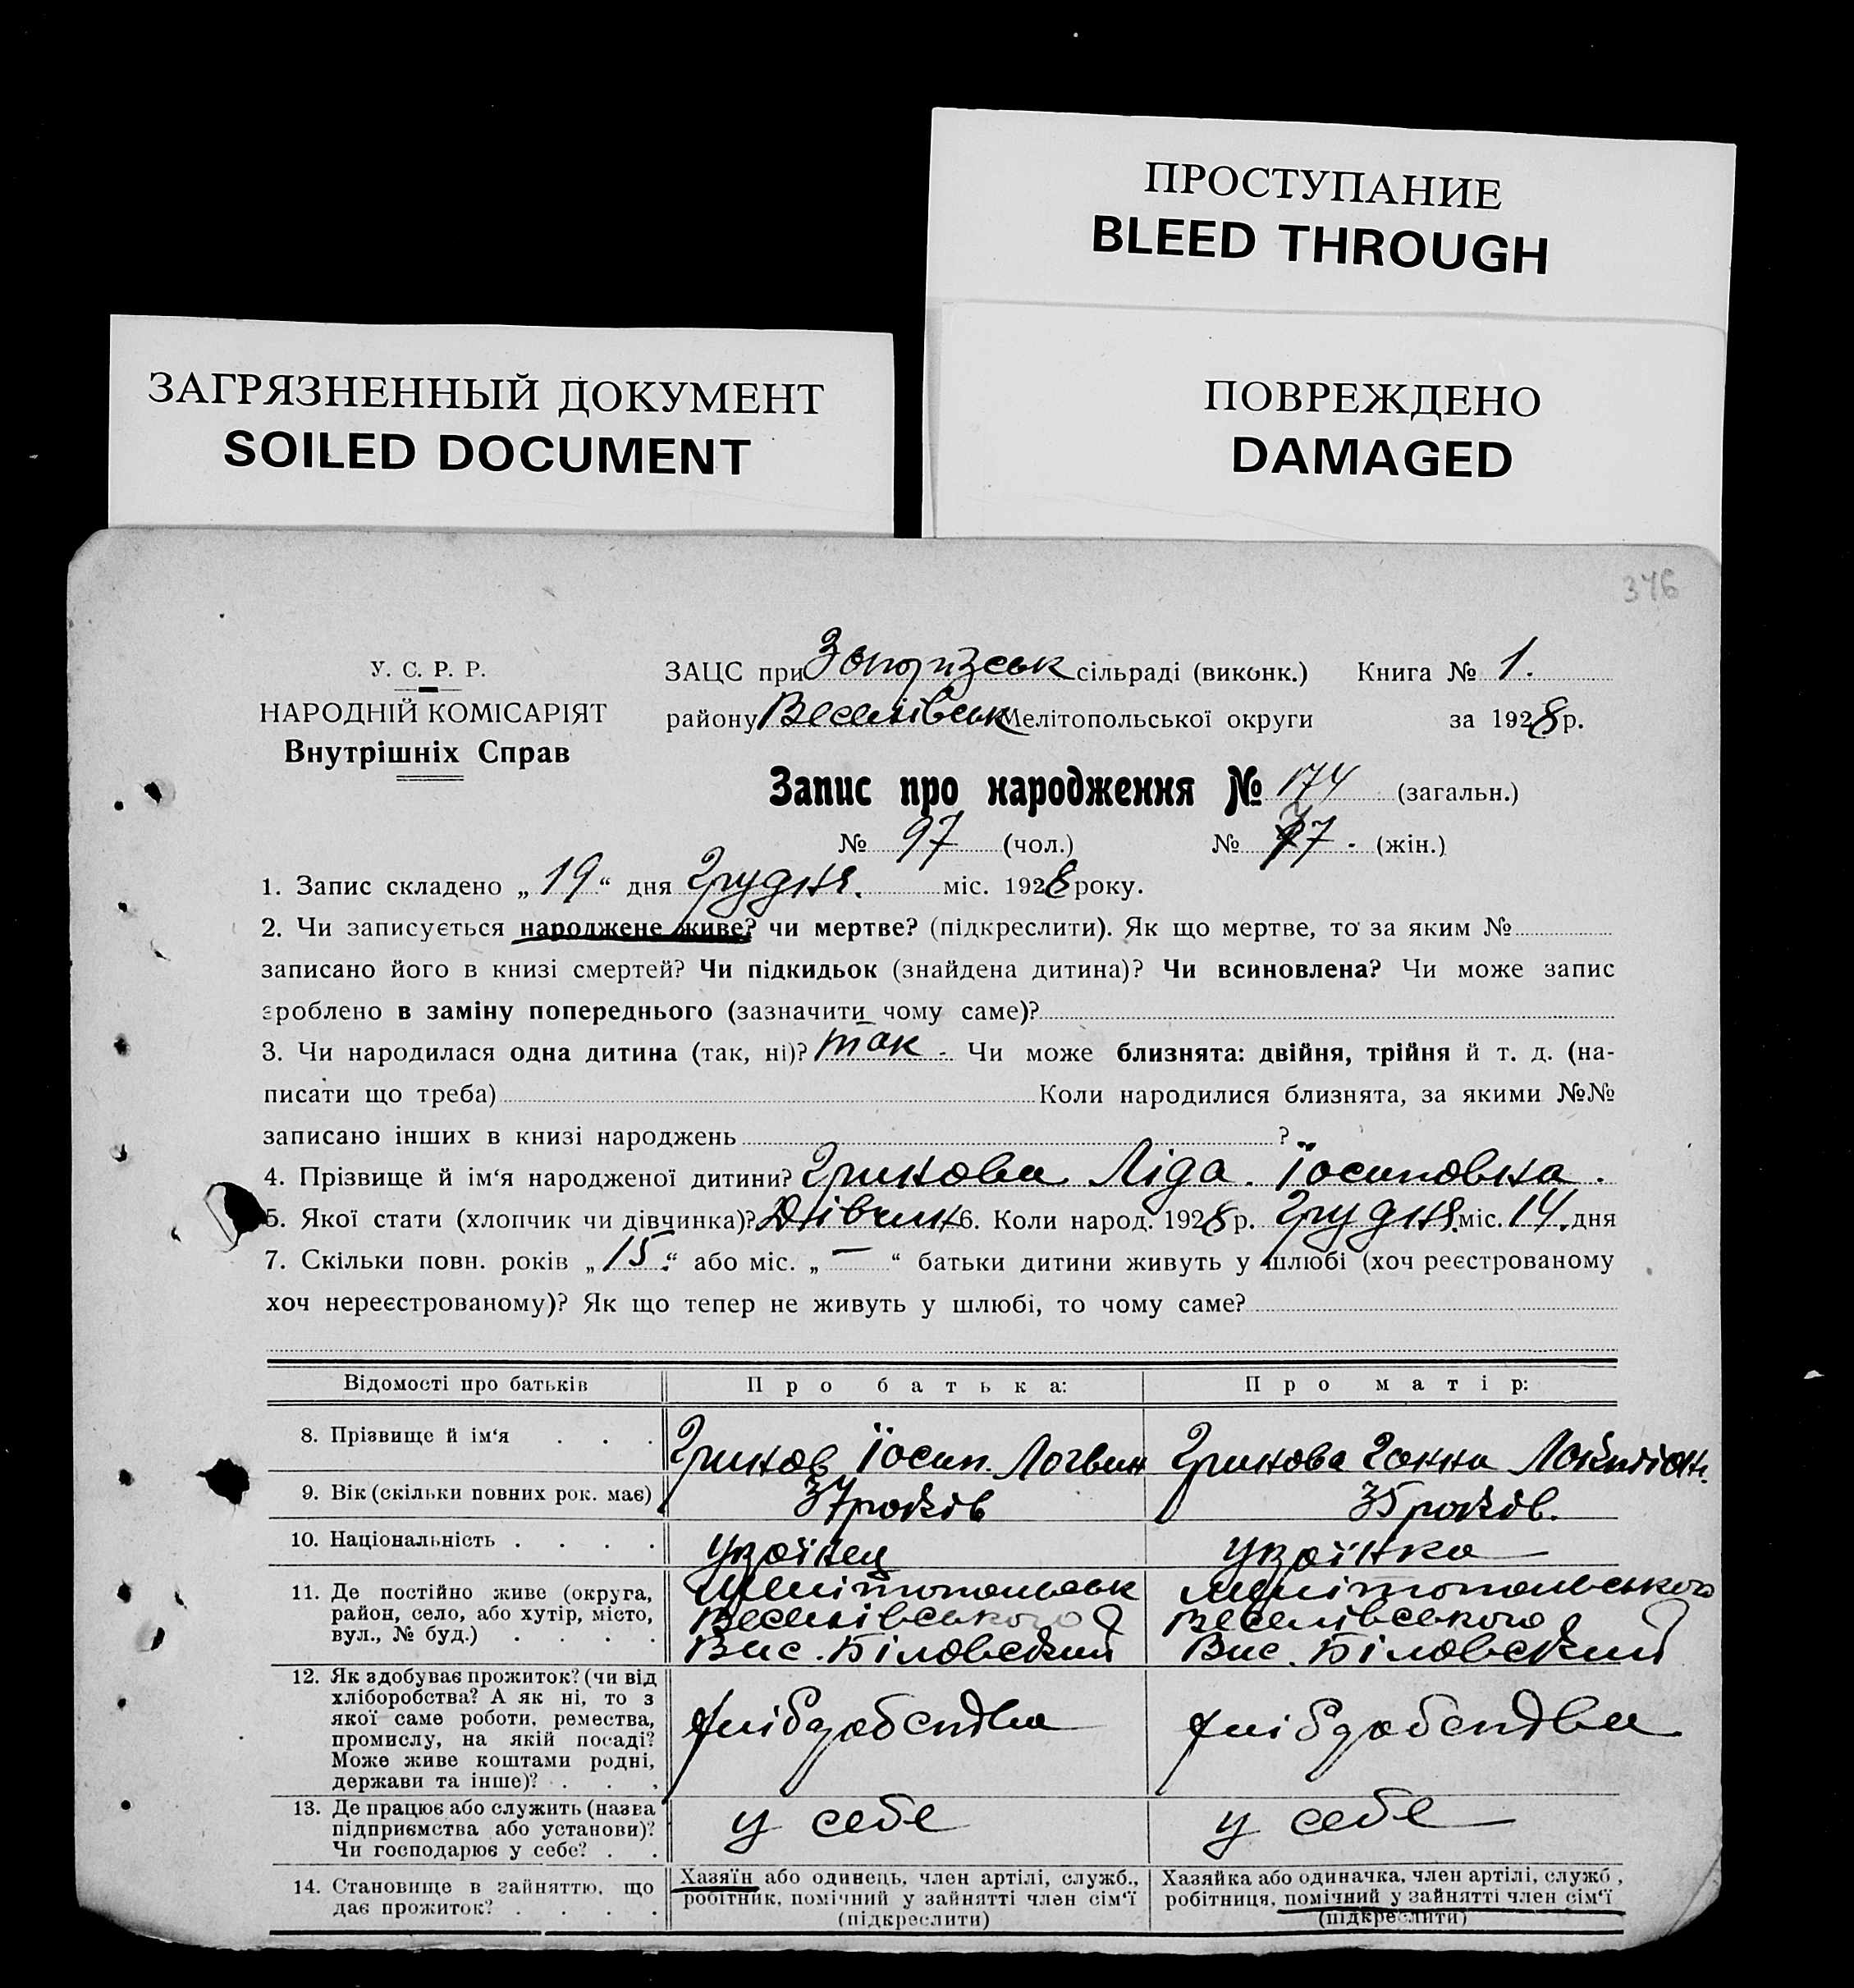 ПРОСТУПАНИЕ
BLEED THROUGH
ЗАГРЯЗНЕННЫЙ ДОКУМЕНТ
SOILED DOCUMENT
ПОВРЕЖДЕНО
DAMAGED
376
У. С. Р. Р.
НАРОДНІЙ КОМІСАРІЯТ
Внутрішніх Справ
ЗАЦС при Запорізськ сільраді (виконк.) Книга № 1.
району Веселівськ Мелітопольської округи за 1928 р.
Запис про народження № 174 (загальн.)
№ 97 (чол.) № 77 (жін.)
1. Запис складено „19“ дня Грудня. міс. 1928 року.
2. Чи записується народжене живе? чи мертве? (підкреслити). Як що мертве, то за яким №
записано його в книзі смертей? Чи підкидьок (знайдена дитина)? Чи всиновлена? Чи може запис
зроблено в заміну попереднього (зазначити чому саме)?
3. Чи народилася одна дитина (так, ні)? так - Чи може близнята: двійня, трійня й т. д. (на-
писати що треба) Коли народилися близнята, за якими №№
записано інших в книзі народжень ?
4. Прізвище й ім‘я народженої дитини? Гринова Ліда. Іосиповна.
5. Якої стати (хлопчик чи дівчинка)? Дівчин 6. Коли народ. 1928 р. Грудня. міс. 14. дня
7. Скільки повн. років „15“ або міс. „—“ батьки дитини живуть у шлюбі (хоч реєстрованому
хоч нереєстрованому)? Як що тепер не живуть у шлюбі, то чому саме?
Відомості про батьків Про батька: Про матір:
8. Прізвище й ім‘я . . . Гринов Їосип. Логвин Гринова Ганна
9. Вік (скільки повних рок. має) 37 років 35 років.
10. Національність . . . . україинец українка
11. Де постійно живе (округа,
район, село, або хутір, місто,
вул., № буд.) . . . .
Мелітопольськ
Веселівського
Вис. Біловский
Мелітопольського
Веселівського
Вис. Біловский
12. Як здобуває прожиток? (чи від
хліборобства? А як ні, то з
якої саме роботи, ремества,
промислу, на якій посаді?
Може живе коштами родні,
держави та інше)? . . .
хлібаробства хлібаробства
13. Де працює або служить (назва
підприємства або установи)?
Чи господарює у себе? . .
у себе у себе
14. Становище в зайняттю, що
дає прожиток? . . . .
Хазяїн або одинець, член артілі, служб.,
робітник, помічний у зайнятті член сім‘ї
(підкреслити)
Хазяйка або одиначка, член артілі, служб ,
робітниця, помічний у зайнятті член сім‘ї
(підкреслити)